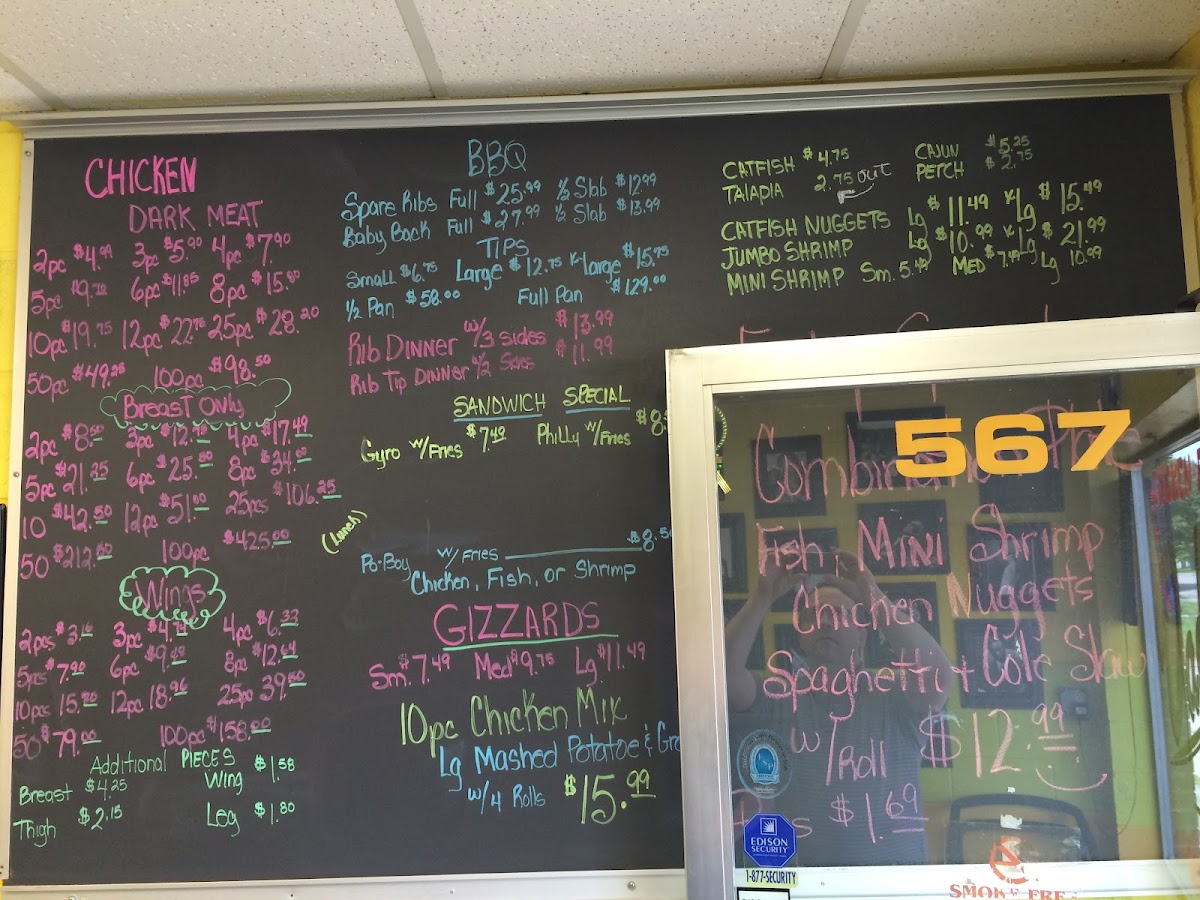 CHICKEN
DARK MEAT
2pc $4.99 3pc $5.90 4pc $7.90
5pc $9.70 6pc $11.85 8pc $15.80
10pc $19.75 12pc $22.70 25pc $28.20
50pc $49.25 100pc $98.50
Breast Only
2pc $8.50 3pc $12.75 4pc $17.49
5pc $21.25 6pc $25.50 8pc $34.00
10 $42.50 12pc $51.00 25pcs $106.25
50 $212.50 100pc $425.00
Wings
2pcs $3.16 3pc $4.74 4pc $6.32
5pcs $7.90 6pc $9.48 8pc $12.64
10pcs 15.80 12pc 18.96 25pc 39.50
50 $79.00 100pc $158.00
Additional PIECES
Breast $4.25 Wing $1.58
Thigh $2.15 Leg $1.80
BBQ
Spare Ribs Full $25.99 ½ Slab $12.99
Baby Back Full $27.99 ½ Slab $13.99
TIPS
Small $6.75 Large $12.75 X-large $15.75
½ Pan $58.00 Full Pan $129.00
Rib Dinner w/3 sides $13.99
Rib Tip Dinner w/2 Sides $11.99
SANDWICH SPECIAL
Gyro w/Fries $7.49 Philly w/Fries
(Lunch)
Po-Boy w/Fries $8.50
Chicken, Fish, or Shrimp
GIZZARDS
Sm. $7.49 Med $9.75 Lg $11.49
10pc Chicken Mix
Lg Mashed Potatoe &
w/4 Rolls $15.99
CATFISH $4.75 CAJUN $5.25
TALAPIA 2.75 out PETCH $2.75
CATFISH NUGGETS Lg $11.49 X-Lg $15.49
JUMBO SHRIMP Lg $10.99 X-Lg $21.99
MINI SHRIMP Sm. 5.49 MED $7.49 Lg 10.99
567
Fish, Mini Shrimp
Chicken Nuggets
Spaghetti + Cole Slaw
w/Roll $12.99
$1.69
EDISON
SECURITY
1-877-SECURITY